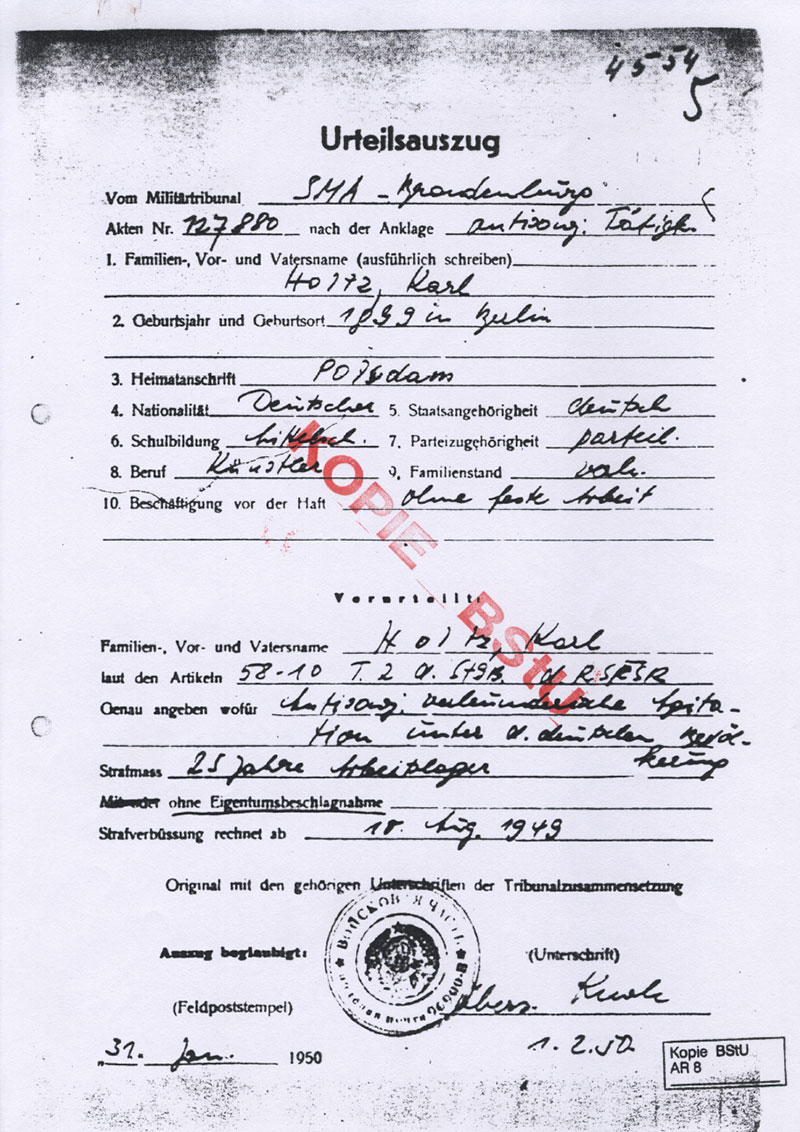 4554
5
Urteilsauszug
Vom Militärtribunal SMA - Brandenburg
Akten Nr. 127880 nach der Anklage antisowj. Tätigk.
1. Familien-, Vor- und Vatersname (ausführlich schreiben)
Holtz, Karl
2. Geburtsjahr und Geburtsort 1899 in Berlin
3. Heimatanschrift Potsdam
4. Nationalität Deutscher 5. Staatsangehörigkeit deutsch
6. Schulbildung Mittelsch. 7. Parteizugehörigkeit parteil.
8. Beruf Künstler 9. Familienstand verh.
10. Beschäftigung vor der Haft ohne feste Arbeit
KOPIE BStU
Verurteilt:
Familien-, Vor- und Vatersname Holtz, Karl
laut den Artikeln 58-10 T. 2 d. StGB. d RSFSR
Genau angeben wofür Antisowj. verleumderische Agita-
tion unter d. deutschen Bevöl-
kerung
Strafmass 25 Jahre Arbeitslager
Mit oder ohne Eigentumsbeschlagnahme
Strafverbüssung rechnet ab 18. Aug. 1949
Original mit den gehörigen Unterschriften der Tribunalzusammensetzung
ВОЙСКОВАЯ ЧАСТЬ
полевая почта
Auszug beglaubigt:
(Unterschrift)
(Feldpoststempel)
Übers.
„31. Jan. 1950
1.2.50
Kopie BStU
AR 8